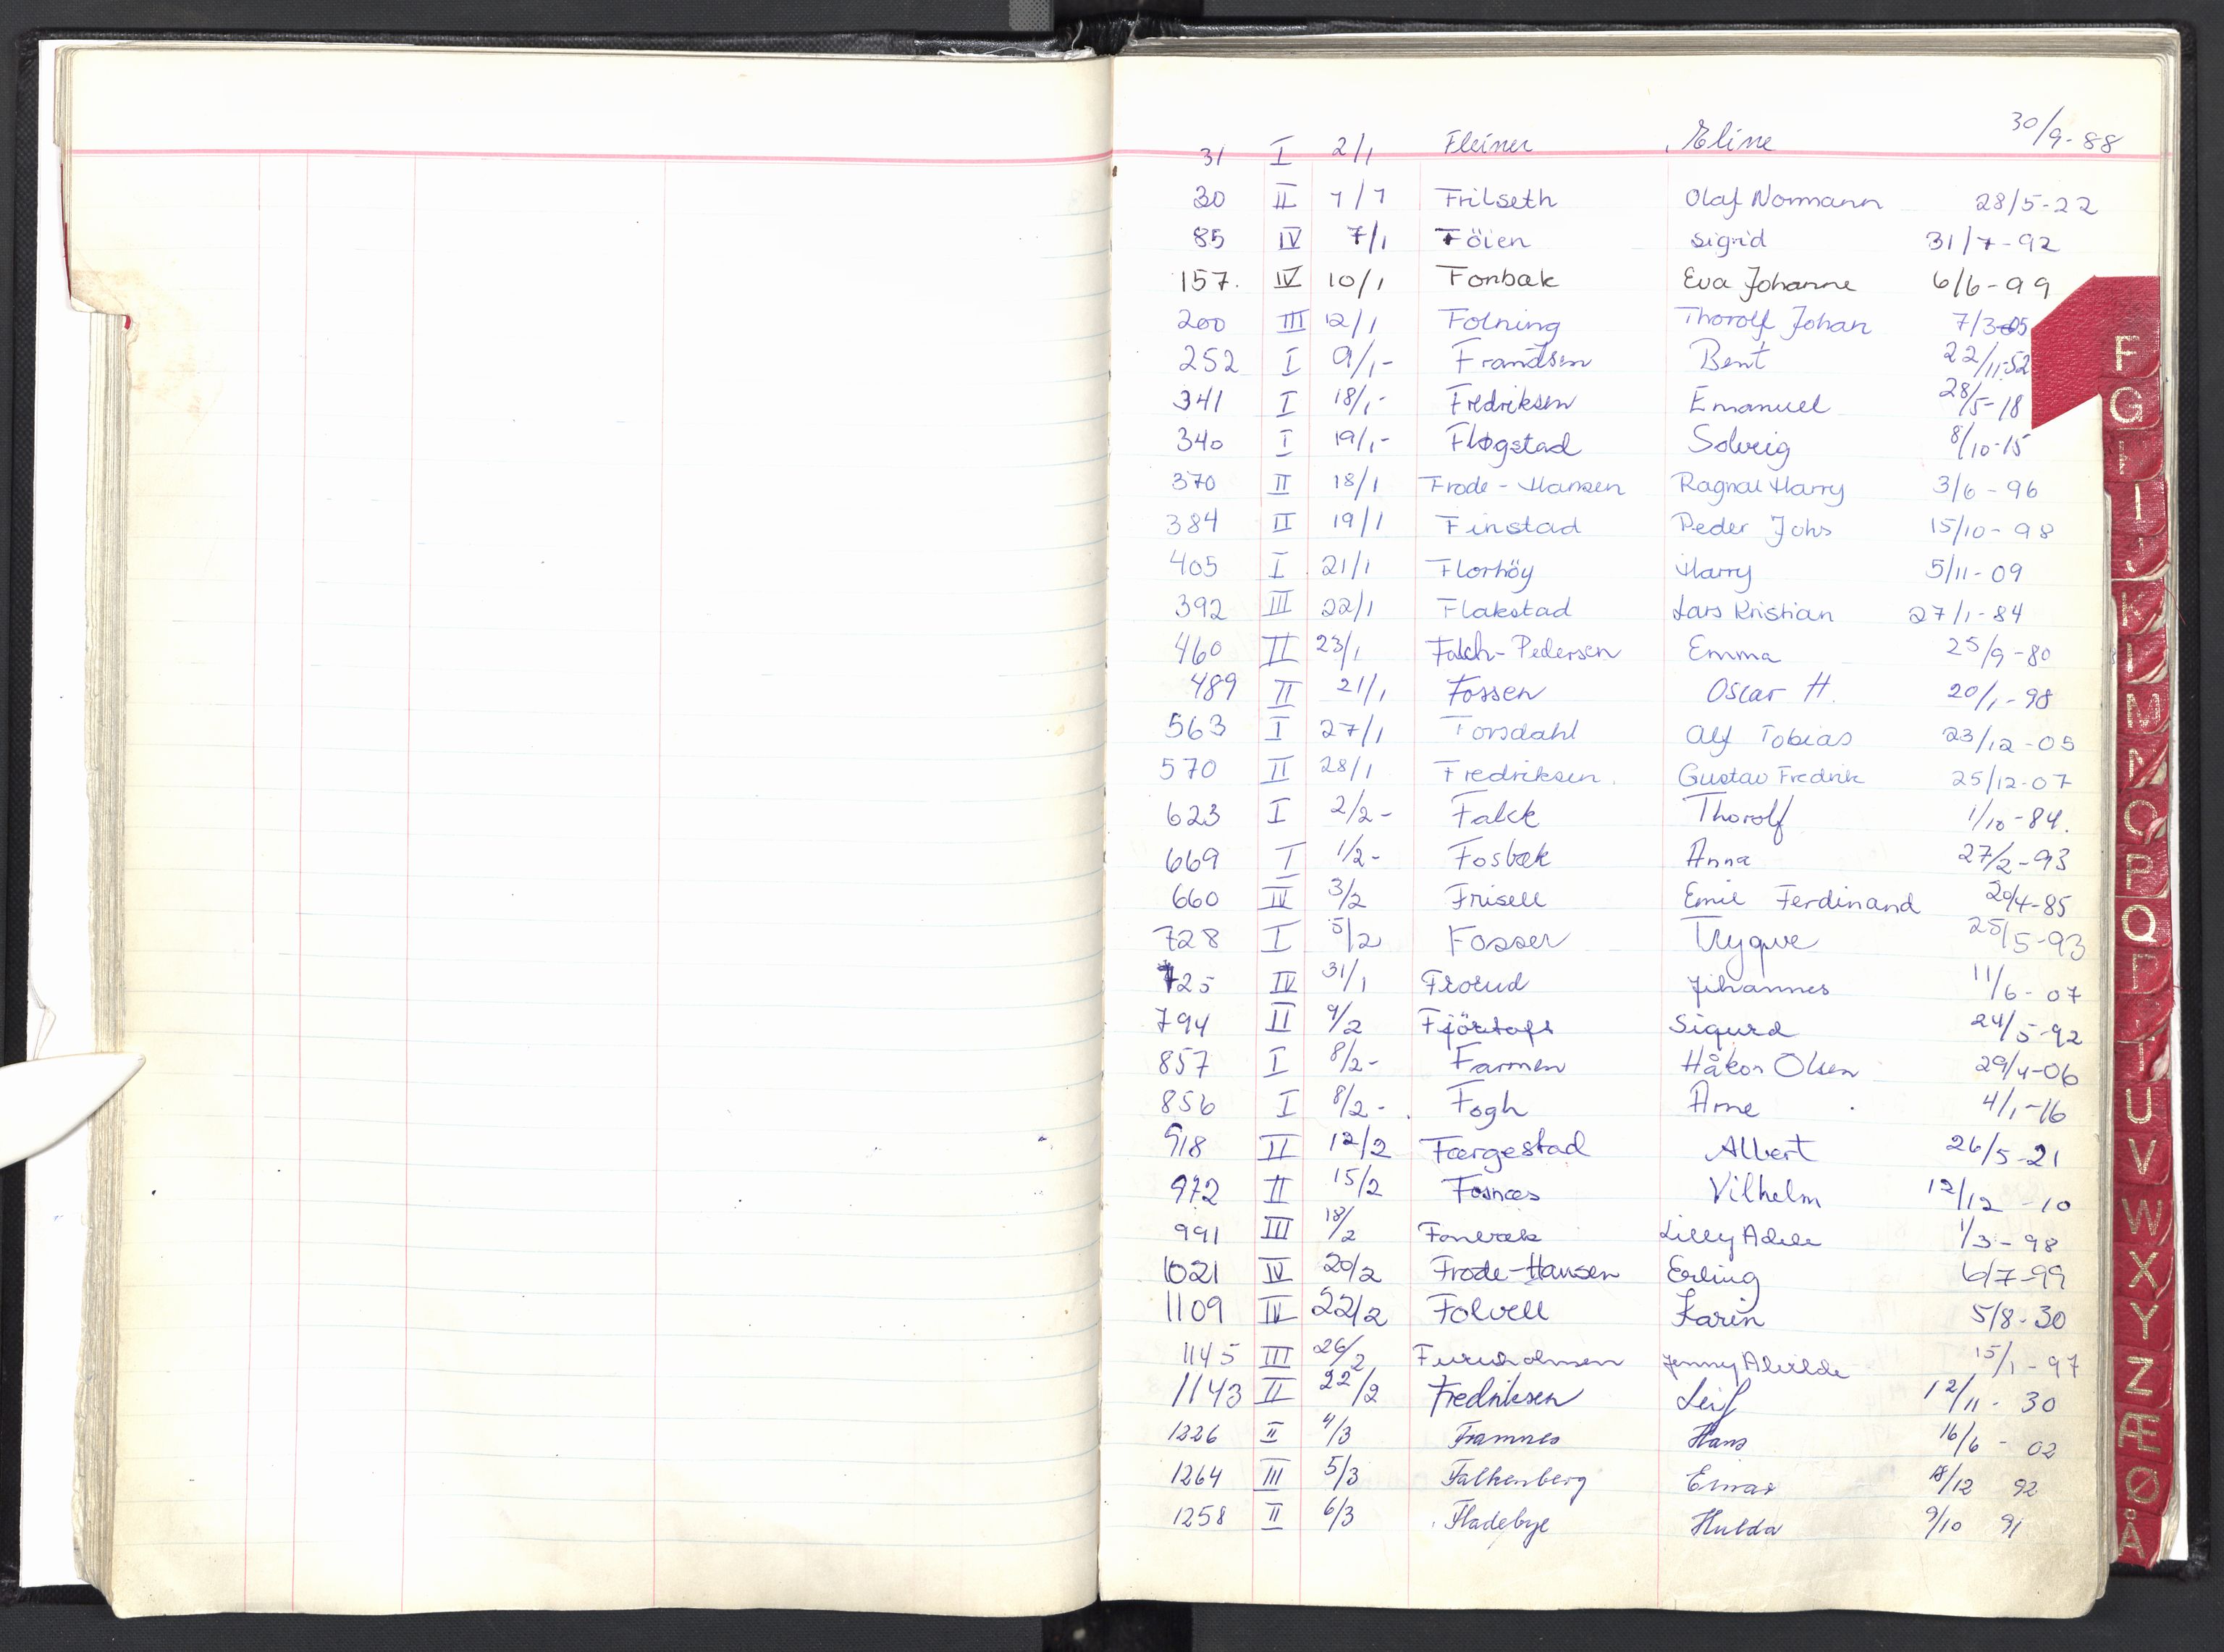 31 I 2/1 Fleiner Eline 30/9-88
30 II 7/1 Frilseth Olaf Normann 28/5-22
85 IV 7/1 Föien Sigrid 31/7-92
157. IV 10/1 Fonbæk Eva Johanne 6/6-99
200 III 12/1 Folning Thorolf Johan 7/3-05
252 I 9/1- Frandsen Bent 22/11-52
341 I 18/1- Fredriksen Emanuel 28/5-18
340 I 19/1- Fløgstad Solveig 8/10-15
370 II 18/1 Frode-Hansen Ragnar Harry 3/6-96
384 II 19/1 Finstad Peder Johs 15/10-98
405 I 21/1 Florhöy Harry 5/11-09
392 III 22/1 Flakstad Lars Kristian 27/1-84
460 II 23/1 Falch-Pedersen Emma 25/9-80
489 II 21/1 Fossen Oscar H. 20/1-98
563 I 27/1 Forsdahl Alf Tobias 23/12-05
570 II 28/1 Fredriksen. Gustav Fredrik 25/12-07
623 I 2/2- Falck Thorolf 1/10-84.
669 I 1/2- Fosbæk Anna 27/2-93
660 IV 3/2 Frisell Emil Ferdinand 20/4-85
728 I 5/2 Fosser Trygve 25/5-93
725 IV 31/1 Frorud Johannes 11/6-07
794 II 9/2 Fjörtoft Sigurd 24/5-92
857 I 8/2- Farmen Håkon Olsen 29/4-06
856 I 8/2- Fogh Arne 4/1-16
918 II 12/2 Færgestad Albert 26/5-21
972 II 15/2 Fosnæs Vilhelm 12/12-10
991 III 18/2 Fonbæk Lilly Adele 1/3-98
1021 IV 20/2 Frode-Hansen Erling 6/7-99
1109 IV 22/2 Folvell Karin 5/8-30
1145 III 26/2 Furuholmen Jenny Alvilde 15/1-97
1143 II 22/2 Fredriksen Leif 12/11-30
1226 II 4/3 Framnes Hans 16/6-02
1264 III 5/3 Falkenberg Einar 18/12 92
1258 II 6/3 Fladebye Hulda 9/10 91
F
G
I
J
K
M
N
O
P
Q
T
U
V
W
X
Y
Z
Æ
Ø
Å